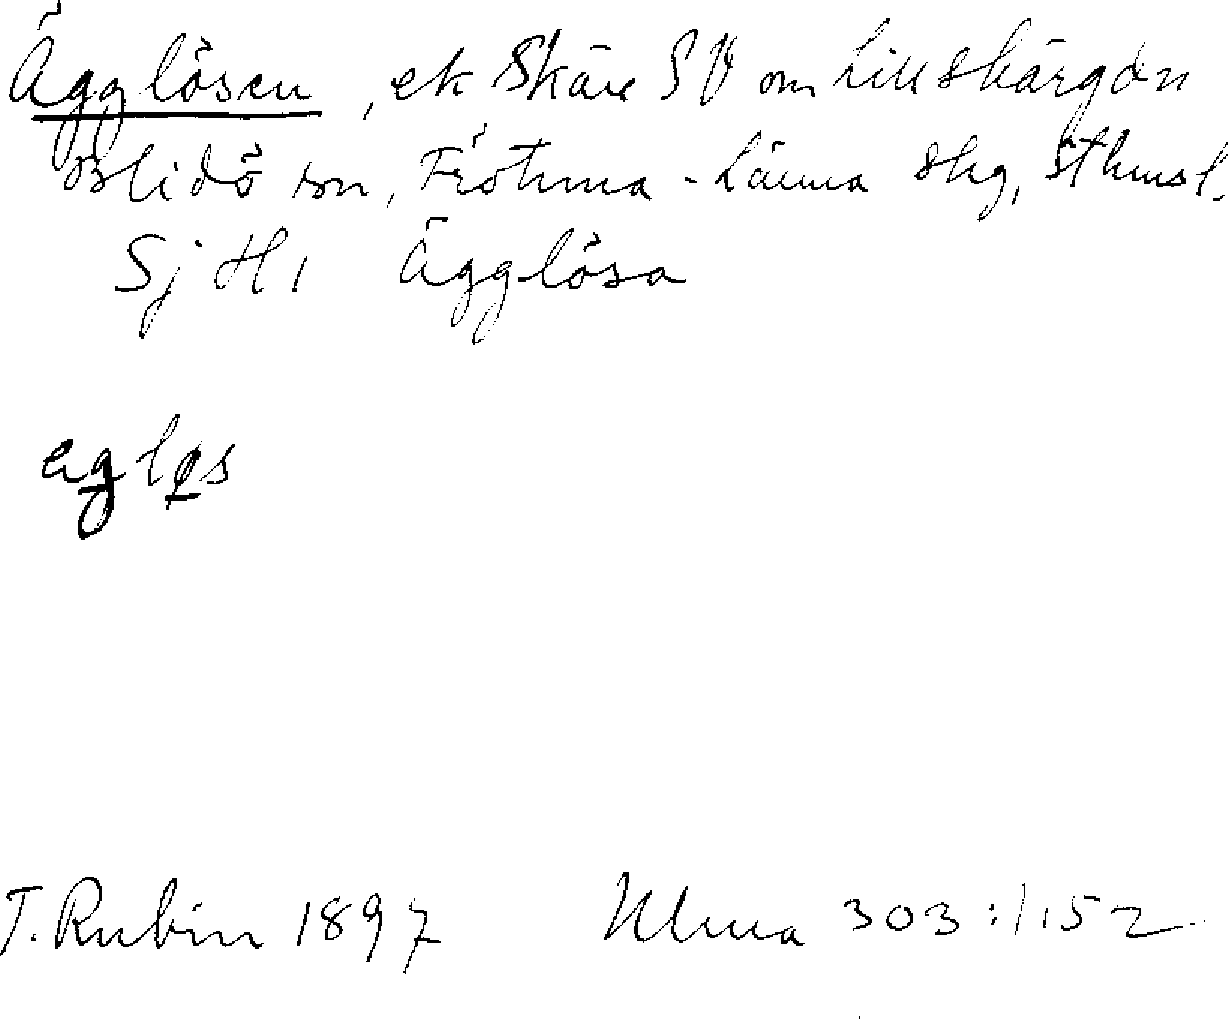 Ägglösen, ek Skär SV om Lillskärgdn
Blidö sn, Frötuna-Länna skg, Sthmsl.
Sj H1 Ägglösa
T. Rubin 1897 Ulma 303:1 152